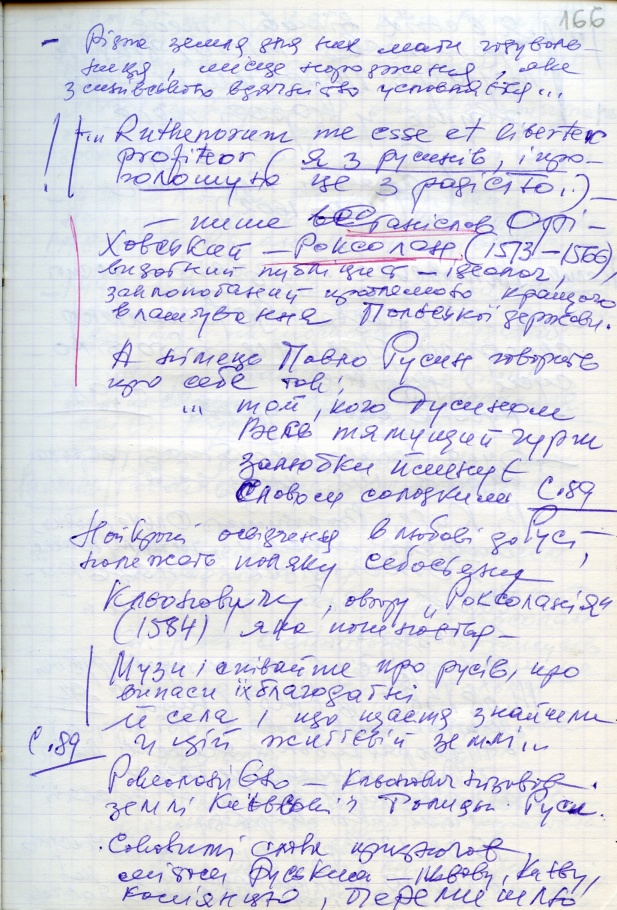 166
– Рідна земля для них мати годуваль-
ниця, місце народження, яке
з синівською вдячністю
!! "... Ruthenorum me esse et libenter
profiteor (я з русинів, і про-
голошую це з радістю..) –
– пише Станіслав Орі-
Ховський – Роксолан (1513 – 1566),
видатний публіцист – ідеолог,
заклопотаний проблемою кращого
влаштування Польської держави.
А німець Павло Русин говорить
про себе так:
... той, кого Русином
Весь тямущий гурт
залюбки йменує
Словом солодким С.89
Найкращі освідчення в любові до Русі,
належать поляку Себастяну
Кльоновичу, автору "Роксоланія"
(1584) яка починається –
Музи і співайте про русів, про
випаси їх благодатні
Й села, і що щастя знайшли
С.89 у цій життєвій землі...
Роксоланією – Кльонович називав
землі Київської і Галицьк. Русі.
Соковиті слова
містам Руським – Львову, Києву,
Кам'янцю, Перемишлю